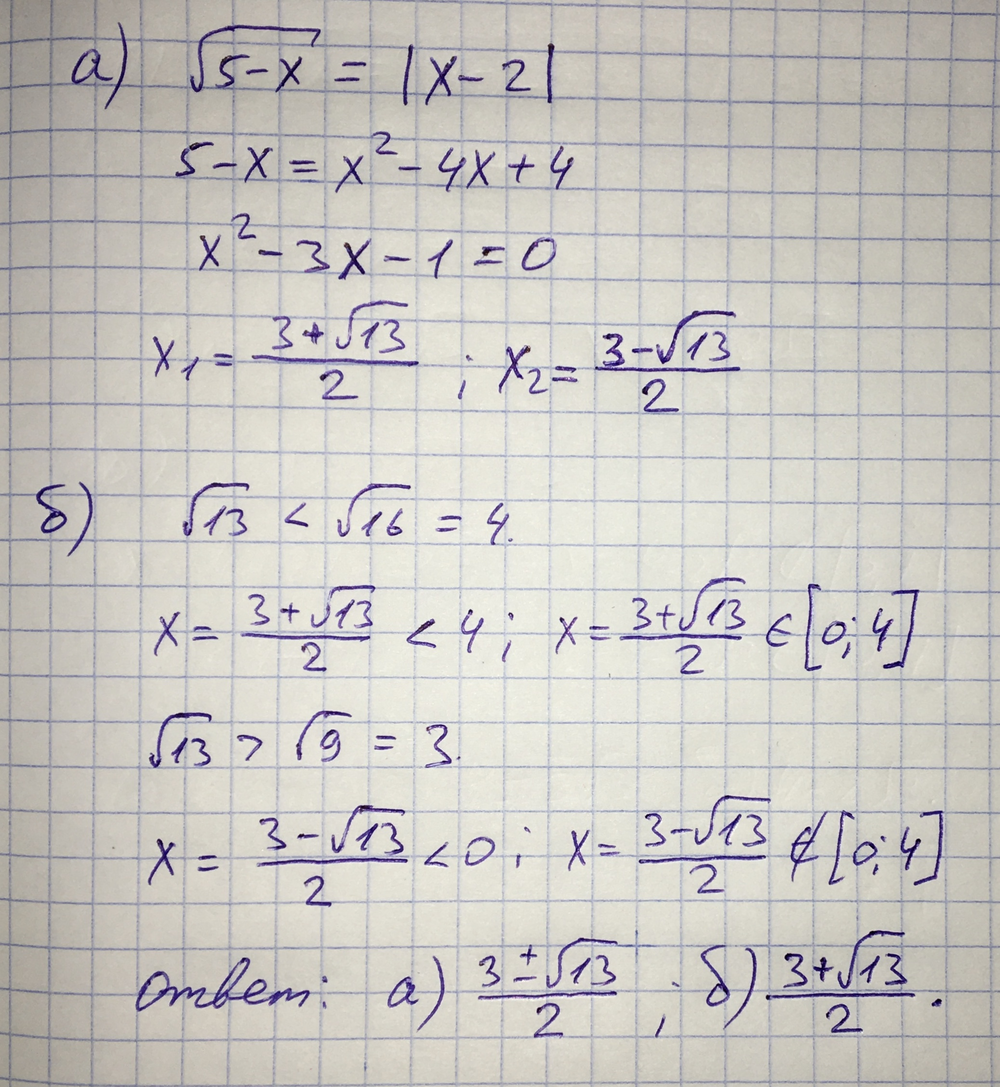 а) √(5-x) = |x-2|
5-x = x² - 4x + 4
x² - 3x - 1 = 0
x₁ = (3+√13)/2 ; x₂ = (3-√13)/2
б) √13 < √16 = 4.
x = (3+√13)/2 < 4; x = (3+√13)/2 ∈ [0; 4]
√13 > √9 = 3.
x = (3-√13)/2 < 0; x = (3-√13)/2 ∉ [0; 4]
Ответ: а) (3±√13)/2 ; б) (3+√13)/2.